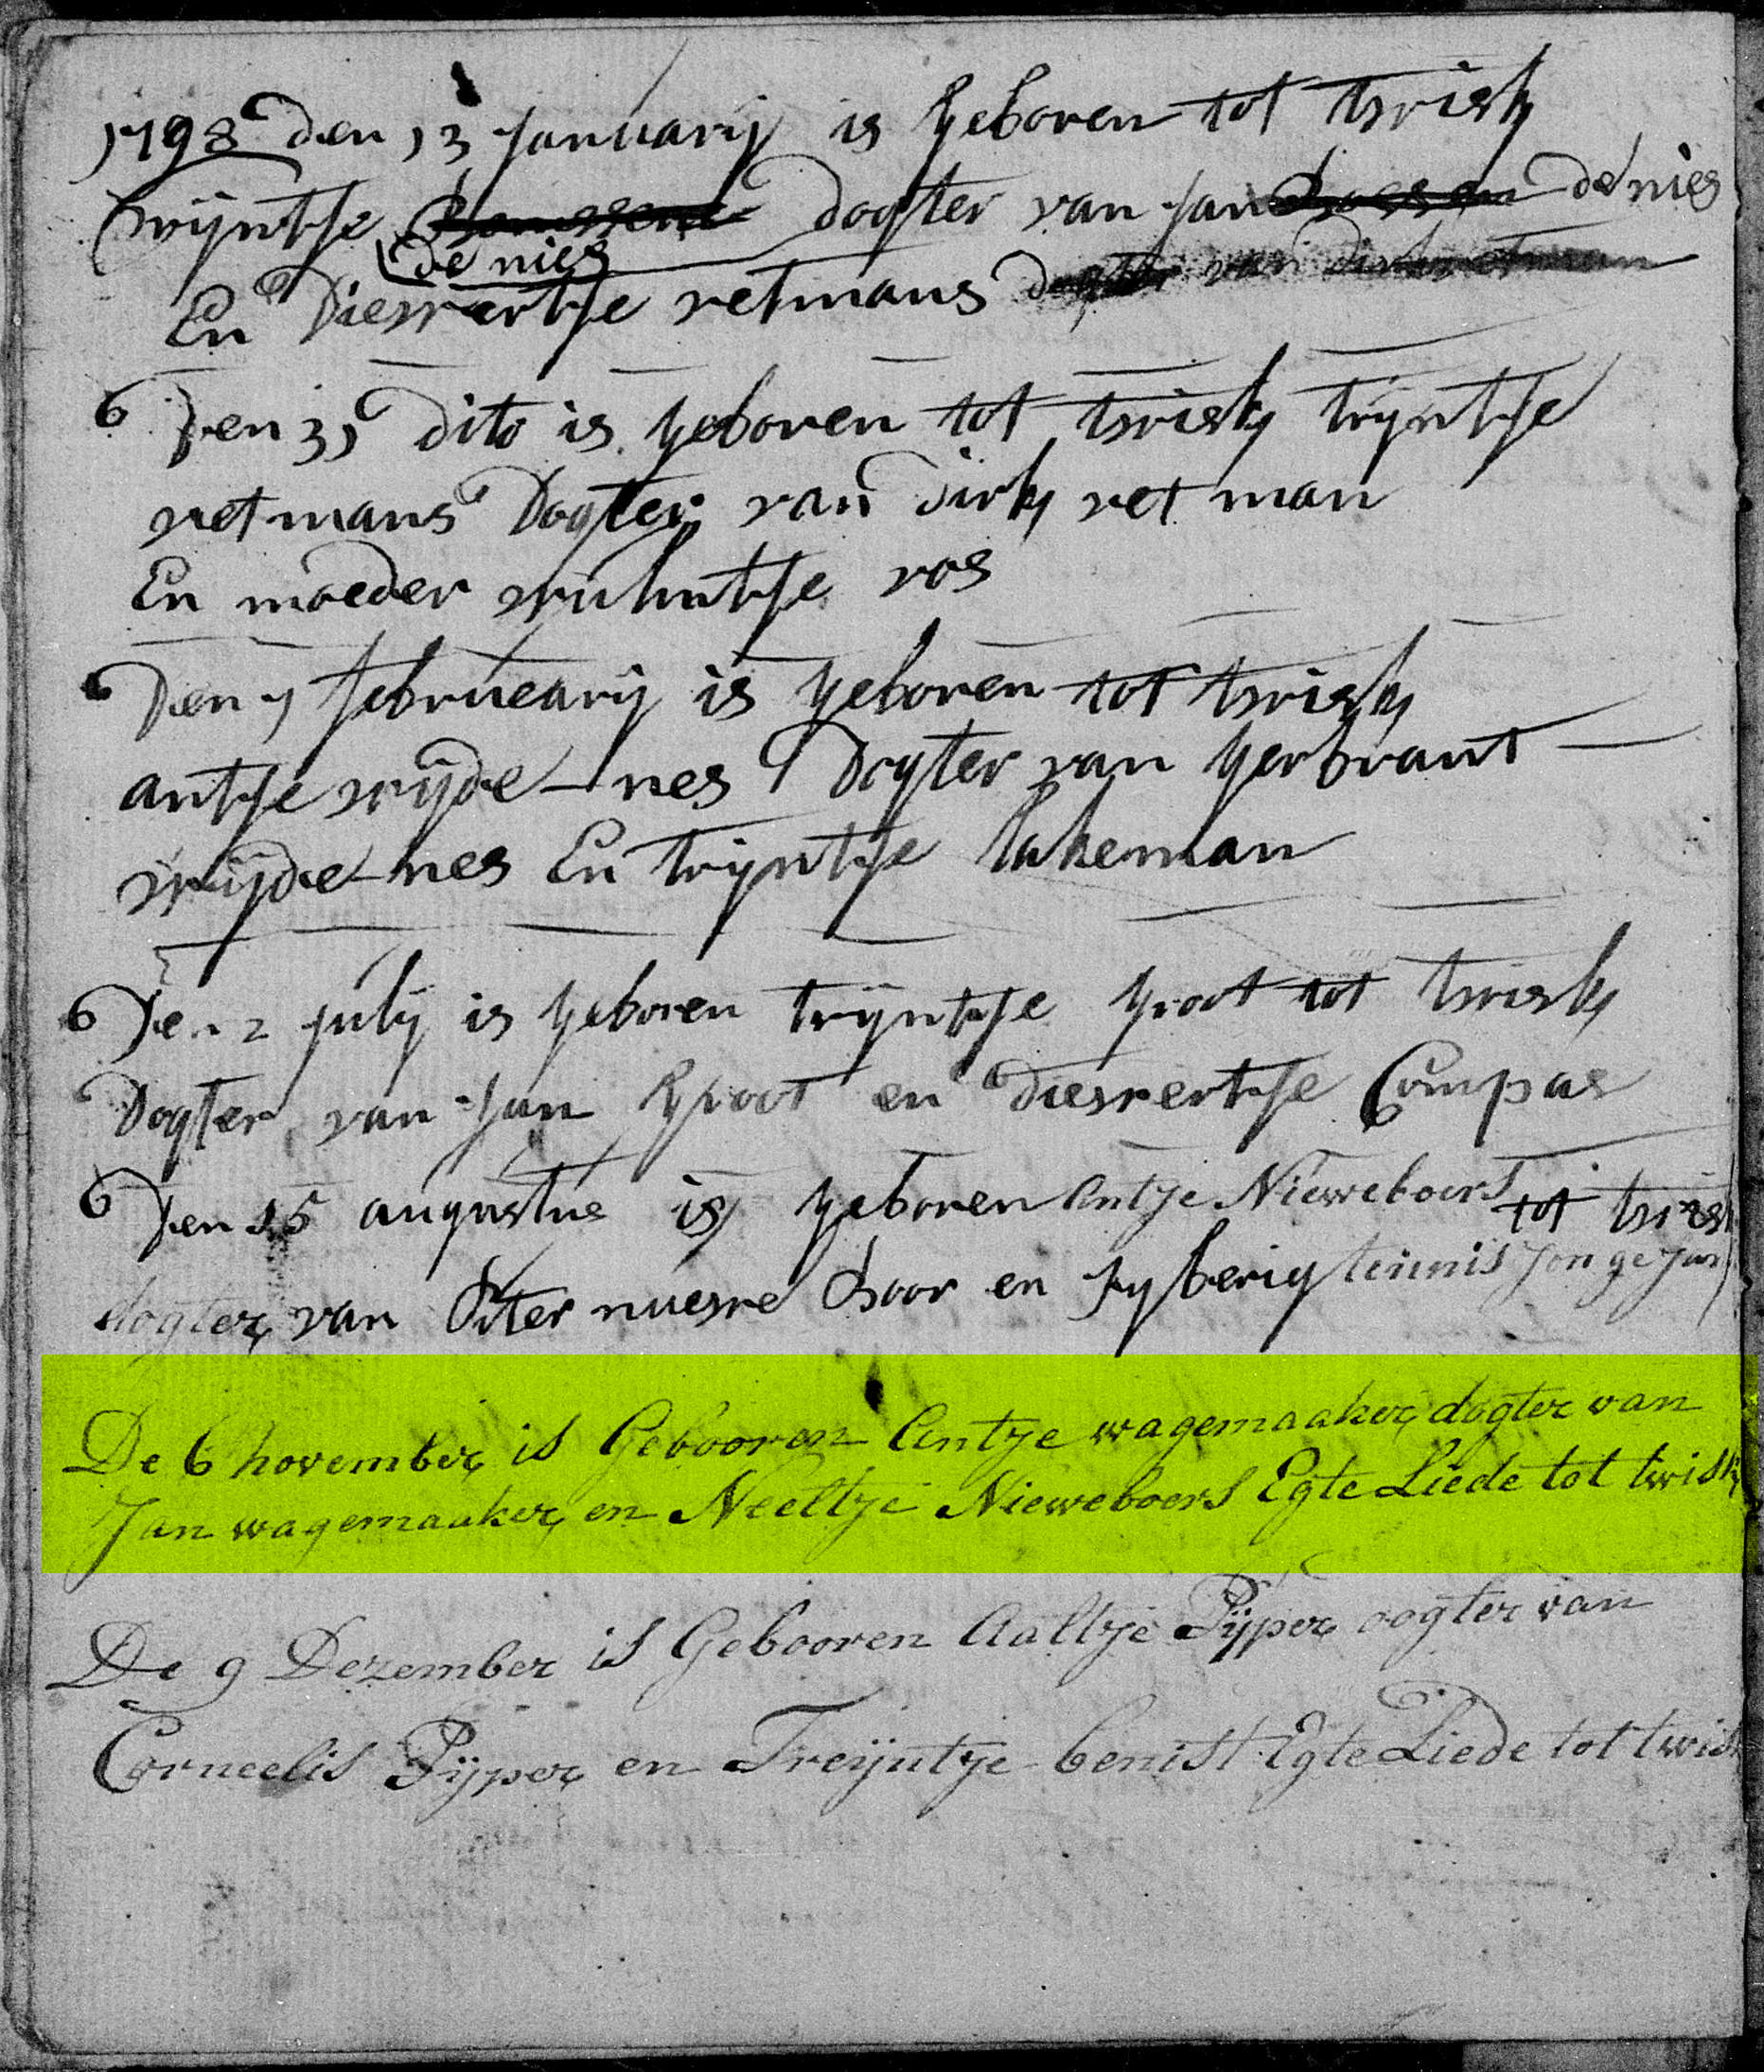 1798 den 13 januarij is geboren tot twisk
trijntje dogter van jan de nies
de nies
En Diewertje vetmans
Den 31 dito is geboren tot twisk trijntje
vetmans Dogter van Dirk vet man
En moeder vos
Den 7 februearij is geboren tot twisk
antje vrijde-nes Dogter van gerbrant
vrijde-nes En trijntje lakeman
Den 2 julij is geboren trijntje groot tot twisk
Dogter van jan groot en Diewertje Compas
Den 15 augustus is geboren Antje Nieweboers tot twis
dogter van Piter nuewe boor en teunis jonge jan
De 6 november is Gebooren Antje wagemaaker dogter van
Jan wagemaaker en Neeltje Nieweboers Egte Liede tot twisk
De 9 Dezember is Gebooren Aaltje Pijper dogter van
Corneelis Pijper en Treijntje benist Egte Liede tot twisk